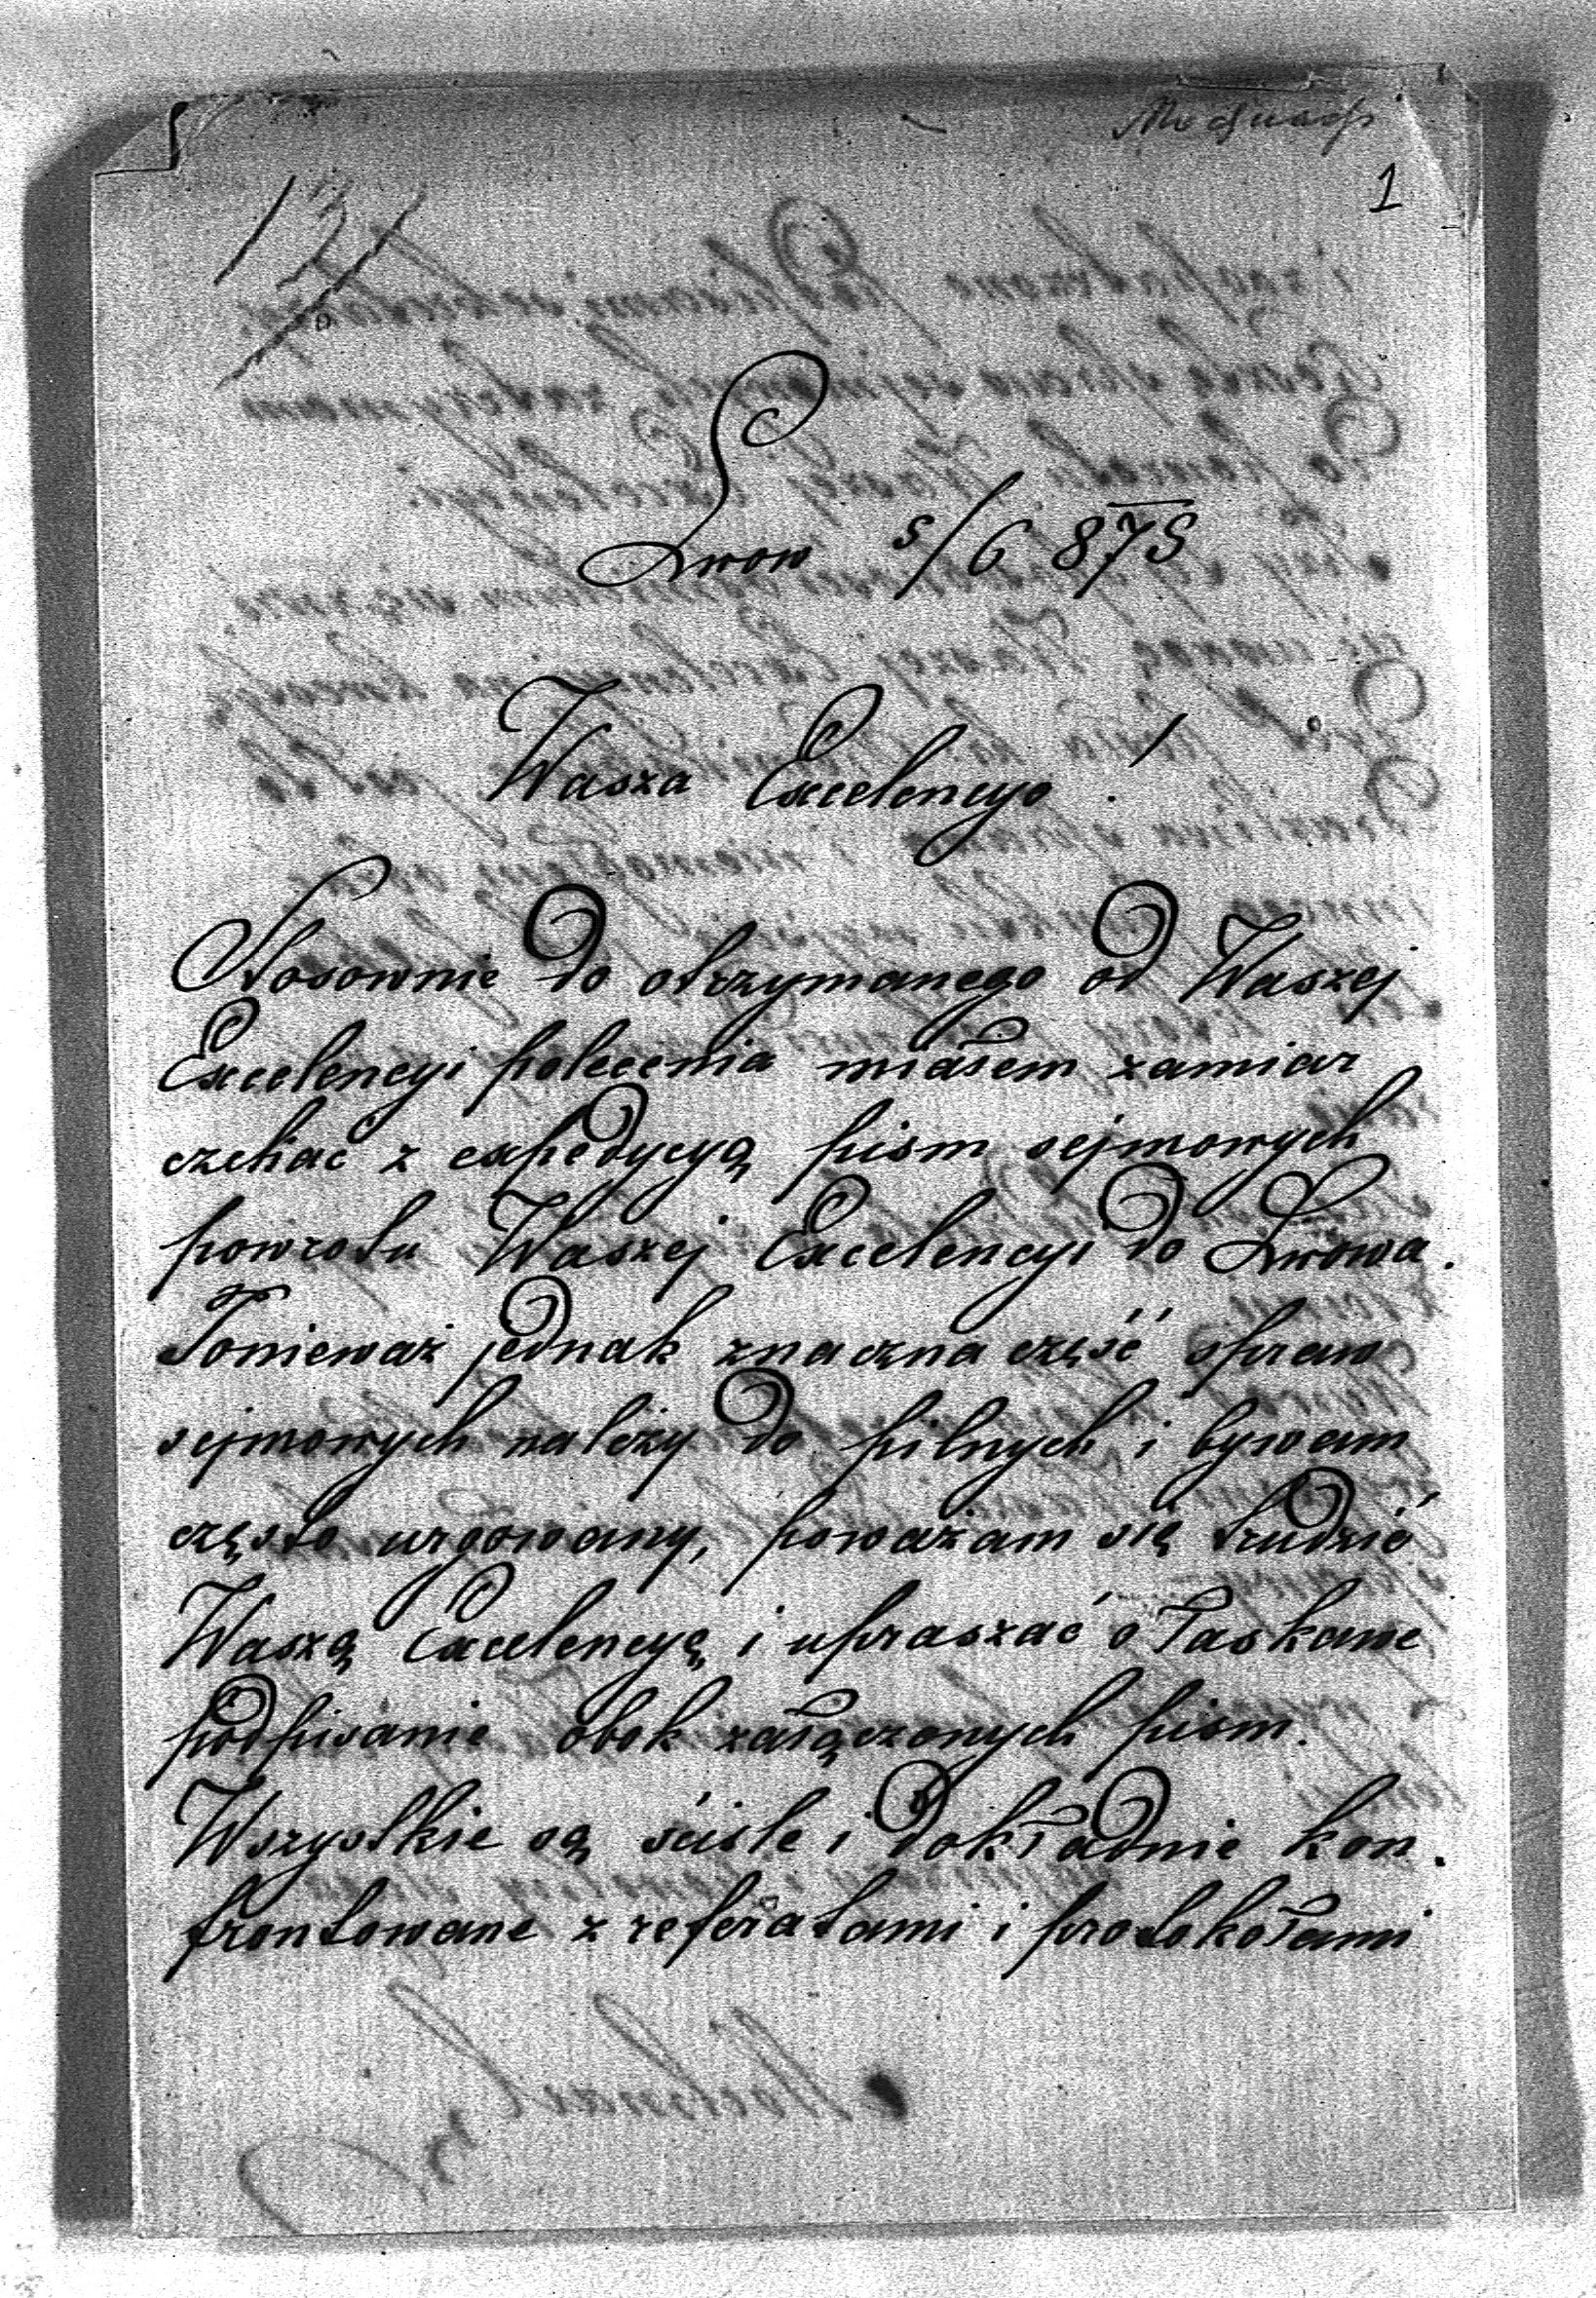 1
Lwow 5/6 875
Wasza Excelencyo!
Stosownie do otrzymanego od Waszej
Excelencyi polecenia miałem zamiar
czekać z expedycyą pism sejmowych
powrotu Waszej Excelencyi do Lwowa.
Ponieważ jednak znaczna część spraw
sejmowych należy do pilnych i bywam
często urgowany, poważam się trudzić
Waszą Excelencyą i upraszać o łaskawe
podpisanie obok załączonych pism.
Wszystkie są ściśle i dokładnie kon.
frontowane z referatami i protokołami